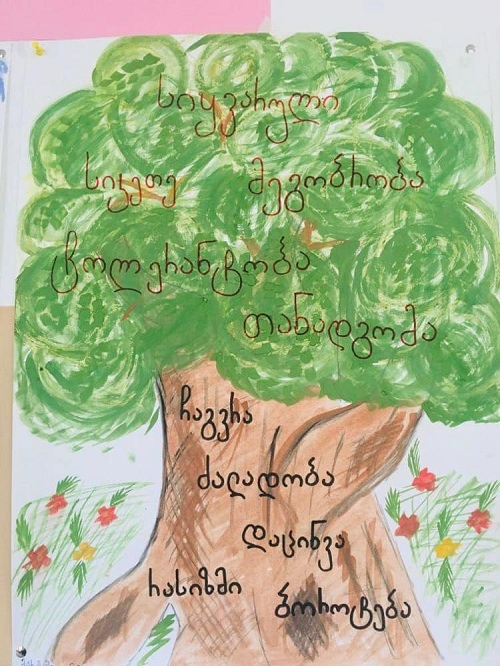 სიყვარული
სიკეთე მეგობრობა
ტოლერანტობა
თანადგომა
ჩაგვრა
ძალადობა
დაცინვა
რასიზმი
ბოროტება